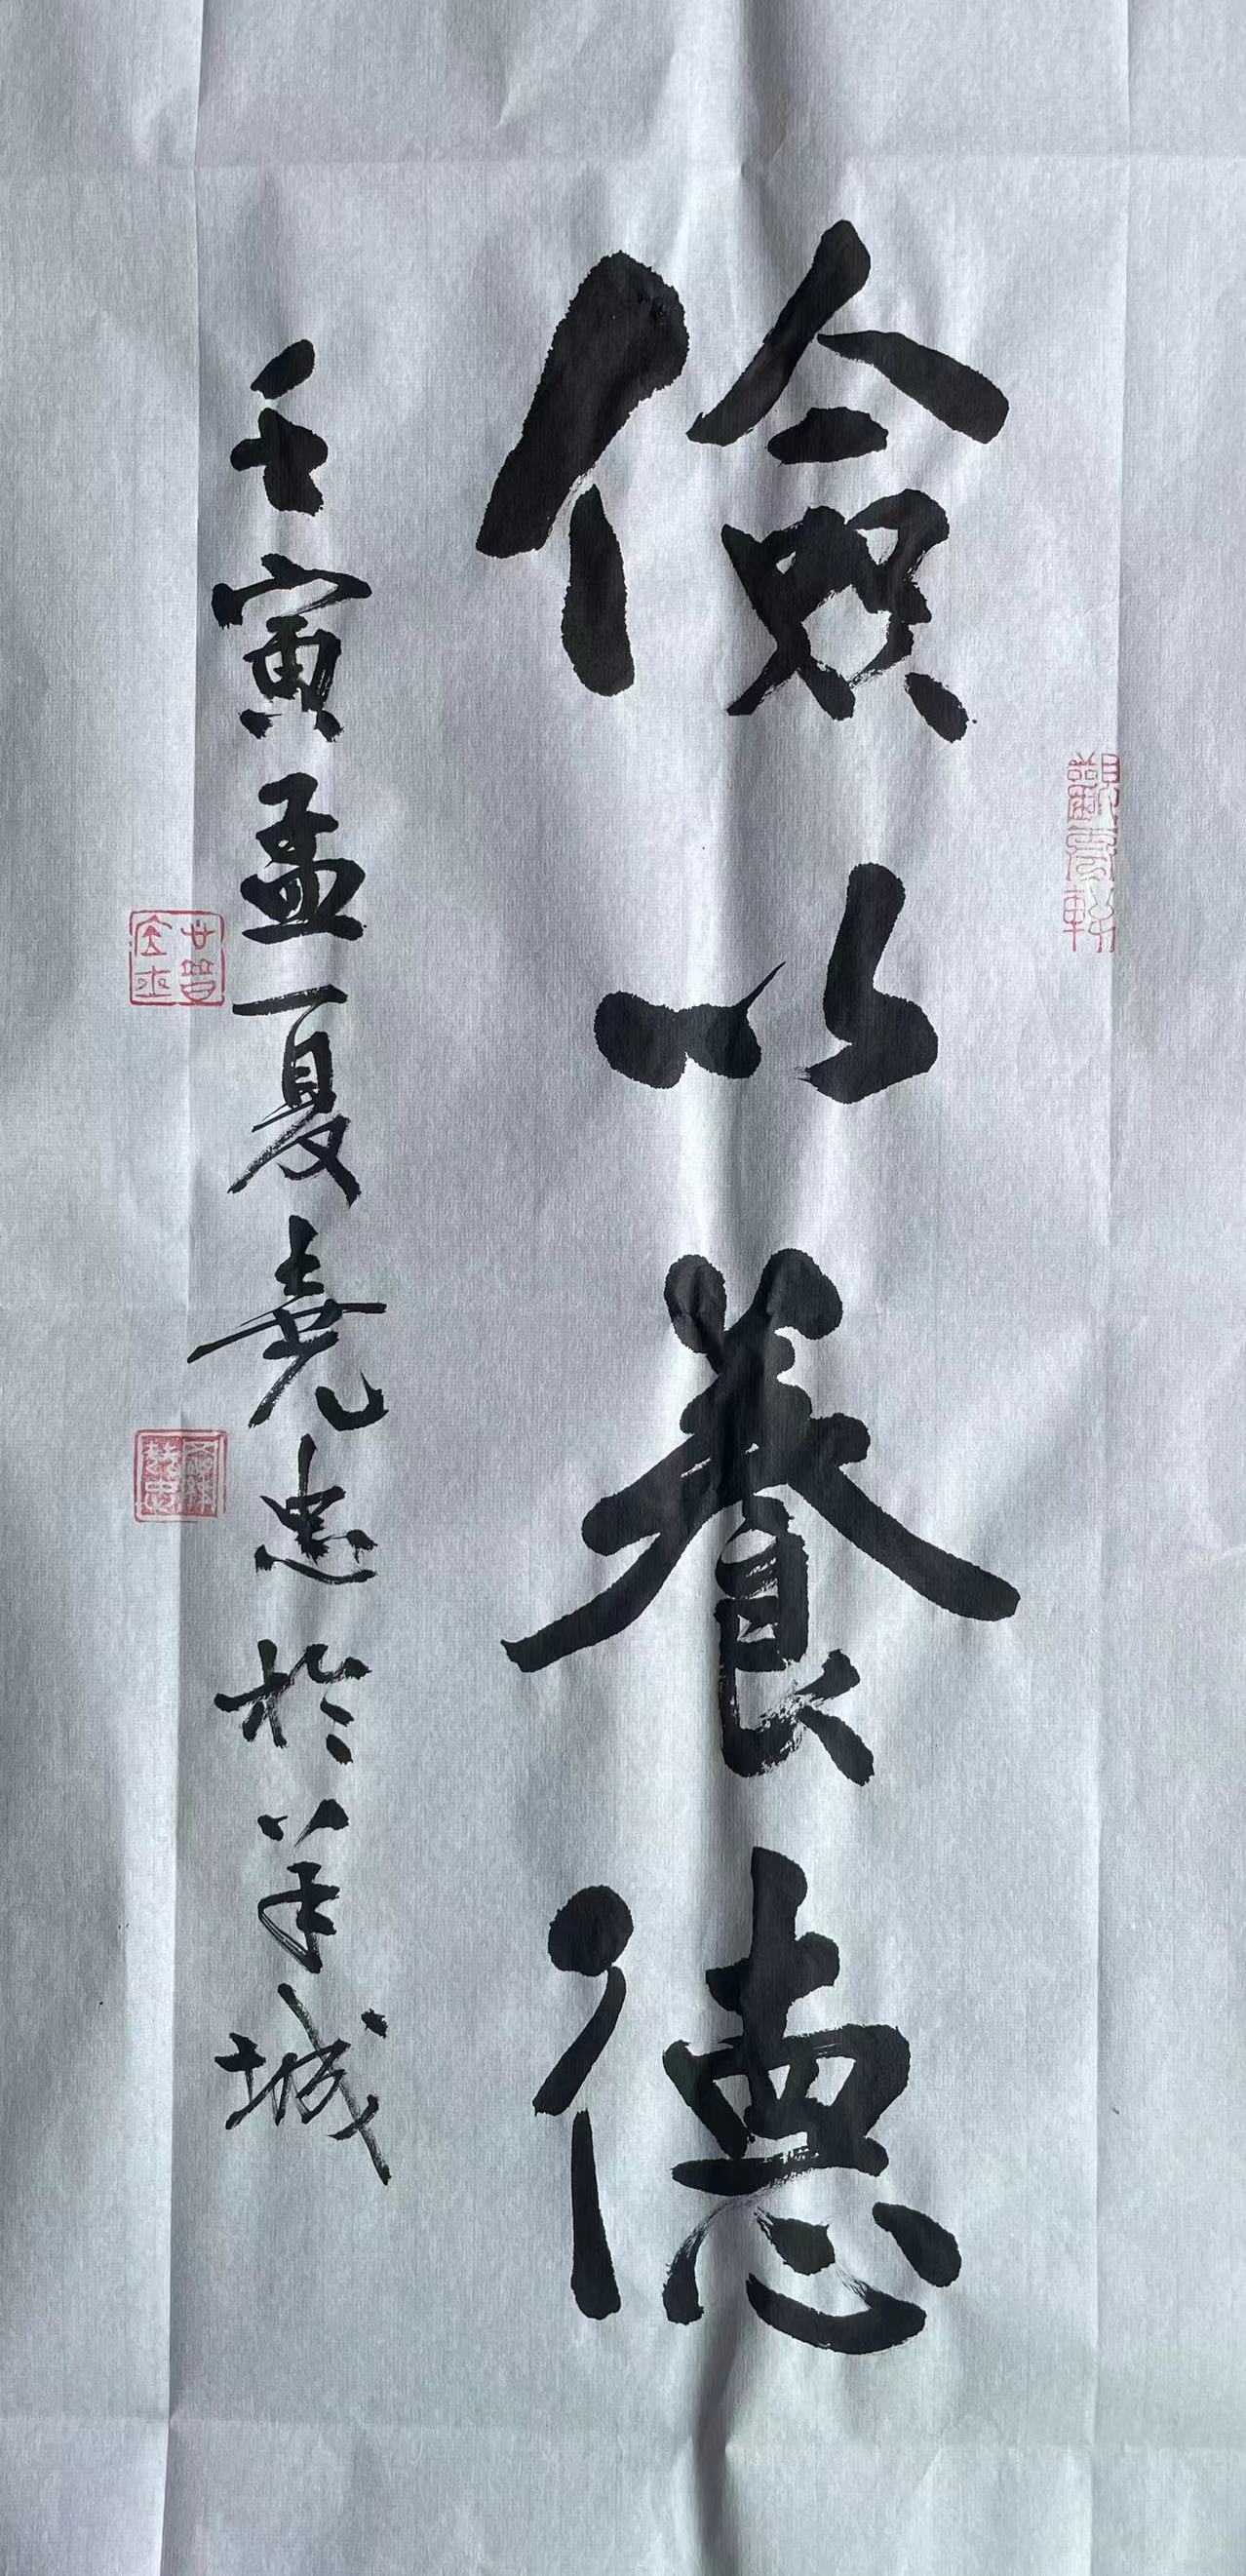 儉以養德
壬寅孟夏堯忠於羊城